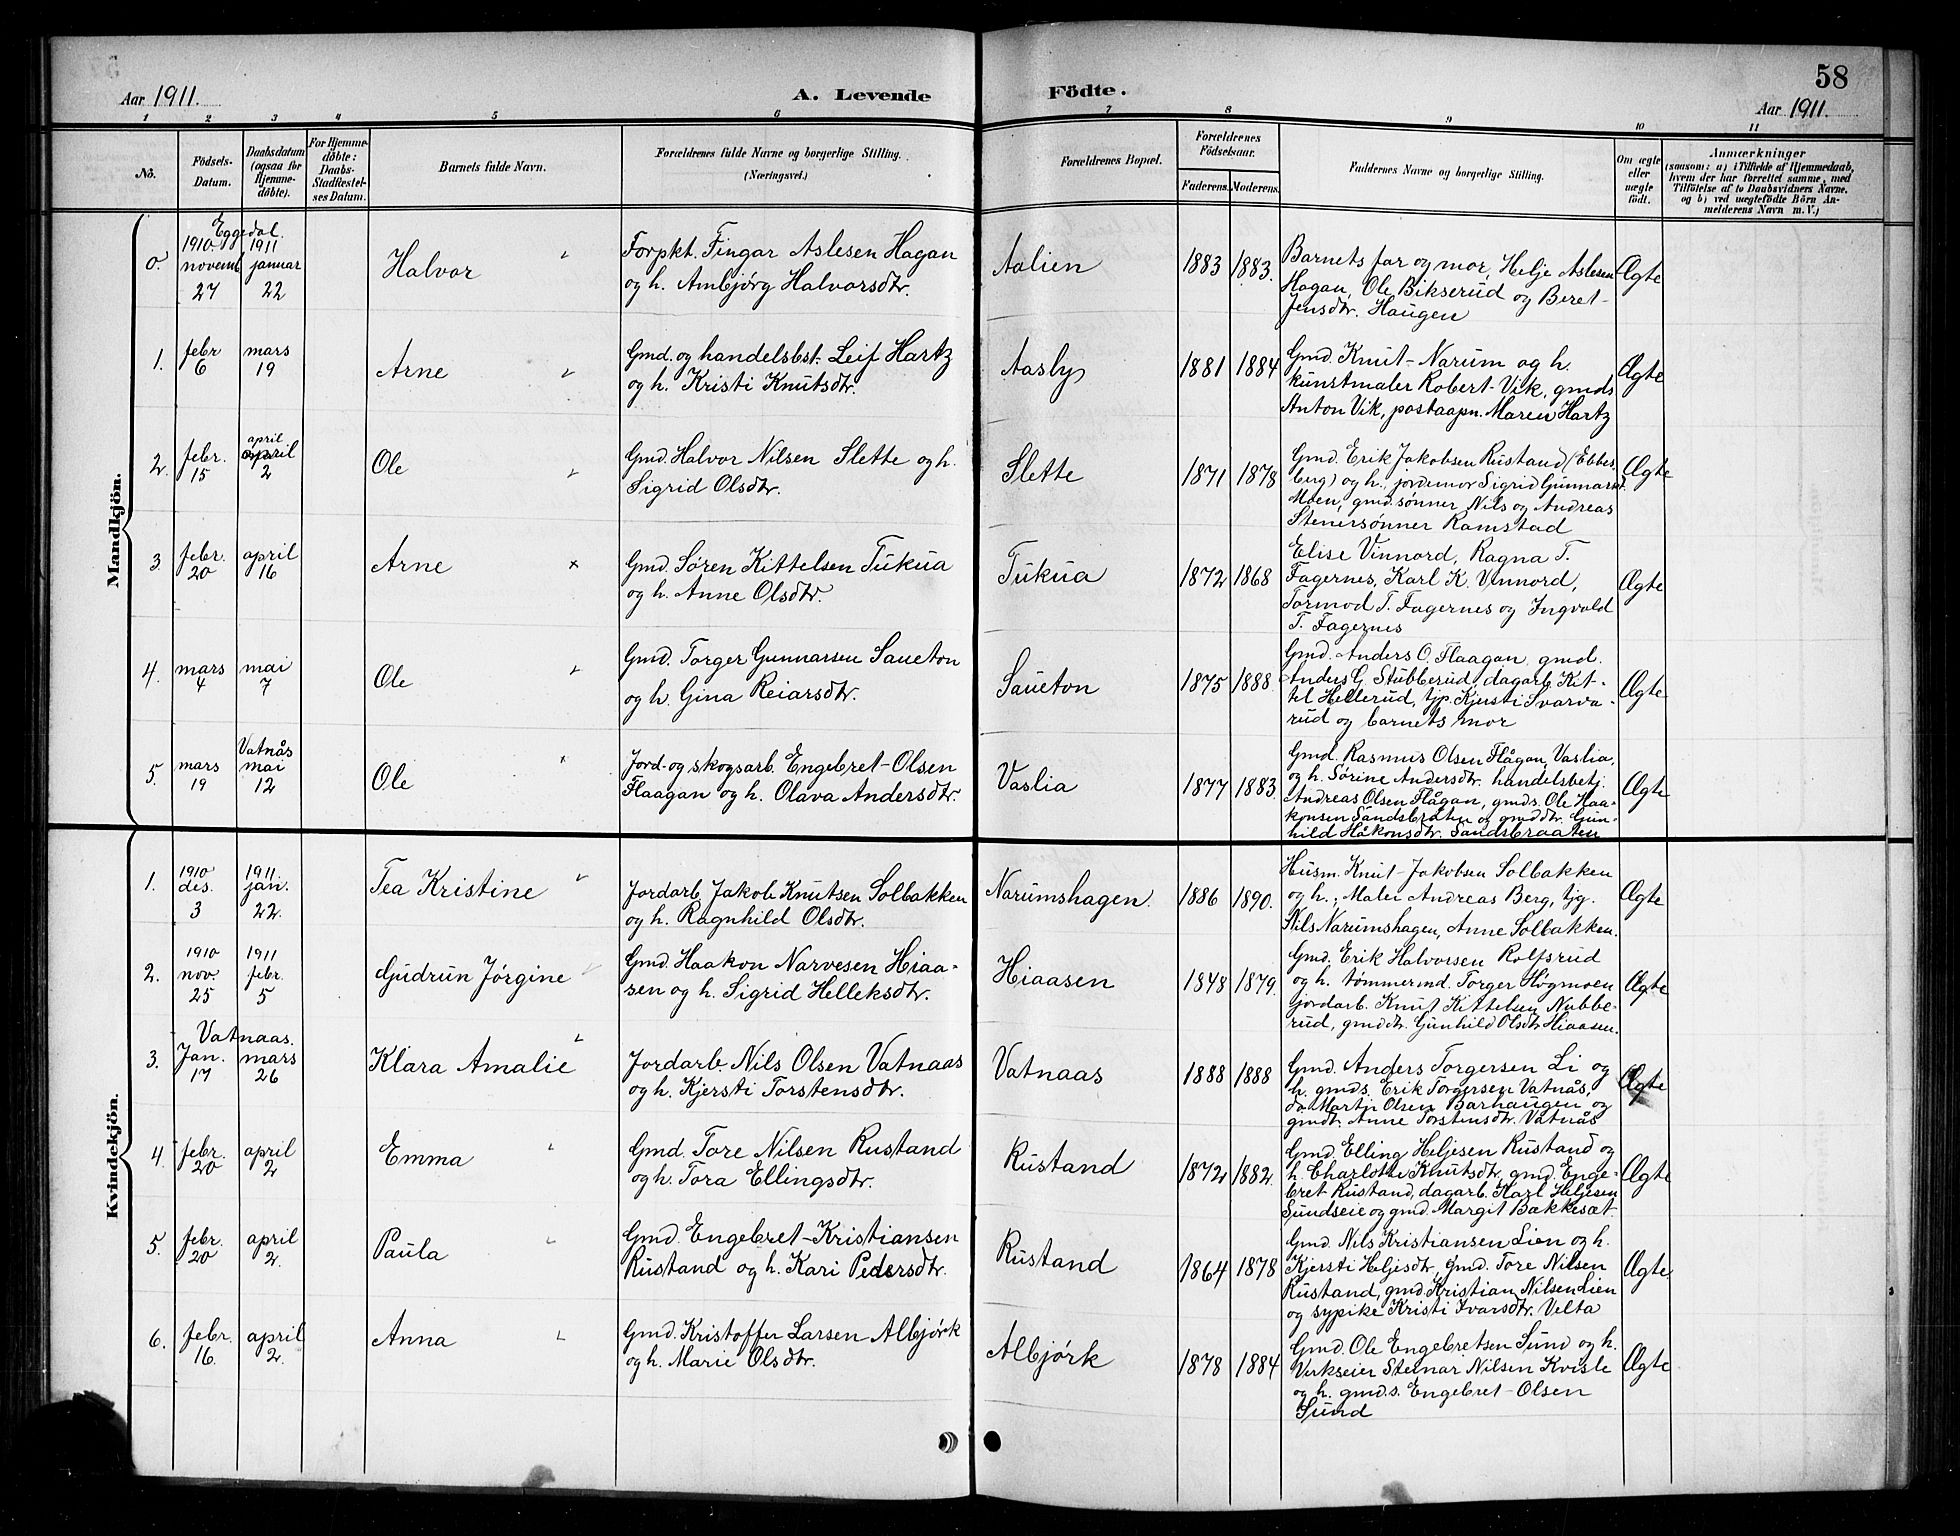 58
Aar 1911.
A. Levende Födte.
Aar 1911.
1 2 3 4 5 6 7 8 9 10 11
Nô.
Födsels-
Datum.
Daabsdatum
(ogsaa for
Hjemme-
døbte).
For Hjemme-
döbte:
Daabs-
Stadfæstel-
ses Datum.
Barnets fulde Navn.
Forældrenes fulde Navne og borgerlige Stilling.
(Næringsvei.)
Forældrenes Bopæl.
Forældrenes
Födselsaar.
Faderens. Moderens.
Faddernes Navne og borgerlige Stilling.
Om ægte
eller
uægte
födt.
Anmærkninger
(saasom: a) i Tilfælde af Hjemmedaab,
hvem der har forrettet samme, med
Tilföielse af to Daabsvidners Navne.
og b) ved uægtefödte Börn An-
melderens Navn m. V.)
Mandkjön.
Eggedal.
0.
1910
novemb
27
1911
januar
22
Halvor
Forpkt. Fingar Aslesen Hagan
og h. Ambjørg Halvorsdtr.
Aalien
1883 1883.
Barnets far og mor, Helje Aslesen
Hagan, Ole Bikserud og Beret
Jensdtr. Haugen
Ægte
1.
febr
6
mars
19
Arne
Gmd. og handelsbst. Leif Hartz
og h. Kristi Knutsdtr.
Aasby
1881 1884
Gmd. Knut Narum og h.
kunstmaler Robert Vik, gmds
Anton Vik, postaapn. Maren Hartz
Ægte
2.
febr.
15
april
april
2
Ole
Gmd. Halvor Nilsen Slette og h.
Sigrid Olsdtr.
Slette
1871 1878
Gmd. Erik Jakobsen Rustand (Ebbes-
berg) og h. jordemor Sigrid Gunnarsd.
Moen, gmd. sønner Nils og Andreas
Stenersønner Ramstad
Ægte
3
febr.
20
april
16
Arne
Gmd. Søren Kittelsen Tukua
og h. Anne Olsdtr.
Tukua
1872 1868
Elise Vinnord, Ragna T.
Fagernes, Karl K. Vinnord,
Tormod T. Fagernes og Ingvald
T. Fagernes
Ægte
4.
mars
4
mai
7
Ole
Gmd. Torger Gunnarsen Saueton
og h. Gina Reiarsdtr.
Saueton
1875 1888.
Gmd. Anders O. Flaagan, gmd.
Anders G. Stubberud, dagarb. Kit-
tel Hellerud, tjp. Kjersti Svarva-
rud og barnets mor
Ægte
5.
mars
19
Vatnås
mai
12
Ole
Jord- og skogsarb. Engebret Olsen
Flaagan og h. Olava Andersdtr.
Vaslia
1877 1883.
Gmd. Rasmus Olsen Flågan, Vaslia,
og h. Sørine Andersdtr. handelsbetj.
Andreas Olsen Flågan, gmds. Ole Haa-
konsen Sandsbråten og gmddtr. Gun-
hild Håkonsdtr. Sandsbraaten
Ægte
Kvindekjön.
1.
1910
des.
3
1911
jan.
22.
Tea Kristine
Jordarb. Jakob Knutsen Solbakken
og h. Ragnhild Olsdtr.
Narumshagen.
1886 1890.
Husm. Knut Jakobsen Solbakken
og h.; Maler Andreas Berg, tjg.
Nils Narumshagen, Anne Solbakken.
Ægte
2.
1910
nov.
25
1911
febr.
5
Gudrun Jørgine
Gmd. Haakon Narvesen Hiaa-
sen og h. Sigrid Helleksdtr.
Hiaasen
1848 1879.
Gmd. Erik Halvorsen Rolfsrud
og h. tømmermd. Torger Högmoen
jordarb. Knut Kittelsen Nubbe-
rud, gmddtr. Gunhild Olsdtr Hiaasen.
Ægte
Vatnaas.
3.
Jan.
17
mars
26
Klara Amalie
Jordarb. Nils Olsen Vatnaas
og h. Kjersti Torstensdtr.
Vatnaas
1888 1888
Gmd. Anders Torgersen Li og
h. gmds. Erik Torgersen Vatnås,
do Martin Olsen Barhaugen og
gmdt. Anne Torstensdtr. Vatnås
Ægte
4.
febr.
20
april
2
Emma
Gmd. Tore Nilsen Rustand
og h. Tora Ellingsdtr.
Rustand
1872 1882.
Gmd. Elling Heljesen Rustand og
h. Charlotte Knutsdtr, gmd. Enge-
bret Rustand, dagarb. Karl Heljesen
Sundseie og gmd. Margit Bakkesæt.
Ægte
5.
febr.
20
april
2.
Paula
Gmd. Engebret Kristiansen
Rustand og h. Kari Pedersdtr.
Rustand
1864 1878
Gmd. Nils Kristiansen Lien og h.
Kjersti Heljesdtr, gmd. Tore Nilsen
Rustand, gmd. Kristian Nilsen Lien
og sypike Kristi Ivarsdtr. Velta
Ægte
6.
febr.
16.
april
2.
Anna
Gmd. Kristoffer Larsen Albjørk
og h. Marie Olsdtr.
Albjørk
1878 1884
Gmd. Ole Engebretsen Sund og h.
Verkseier Steinar Nilsen Kvisle
og h. gmd.s. Engebret Olsen
Sund
Ægte